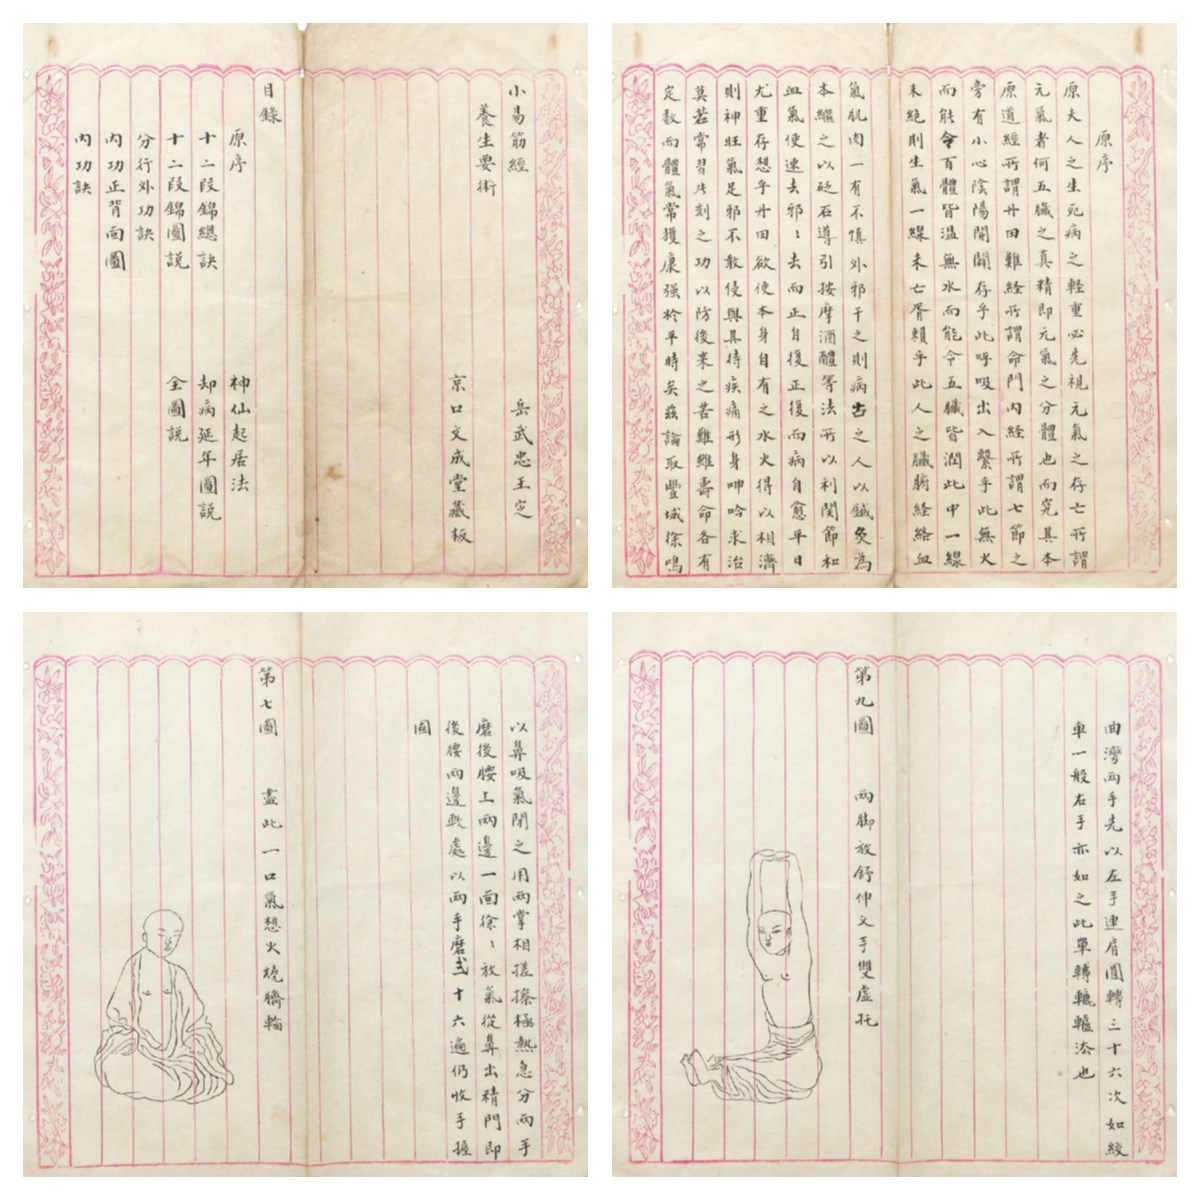 小易筋經
岳武忠王定
養生要術
京口文成堂藏板
目錄
原序
神仙起居法
十二段錦總訣
却病延年圖説
十二段錦圖説
全圖説
分行外功訣
内功正背面圖
内功訣
原序
原夫人之生死病之軽重必先視元氣之存亡所謂
元氣者何五臟之真精即元氣之分體也而究其本
原道經所謂丹田難経所謂命門内經所謂七節之
旁有小心陰陽開闔存乎此呼吸出入繫乎此無火
而能令百體皆温無水而能令五臟皆潤此中一線
未絶則生氣一線未亡胥賴乎此人之臟腑経絡血
氣肌肉一有不慎外邪干之則病古之人以鍼灸為
本繼之以砭石導引按摩酒醴等法所以利関節和
血氣使速去邪〻去而正自復正復而病自愈平日
尤重存想乎丹田欲使本身自有之水火得以相濟
則神旺氣足邪不敢侵與其待疾痛形身呻吟求治
莫若常習片刻之功以防後来之苦難雖壽命各有
定数而體氣常獲康强於平時矣兹論取豐城徐鳴
以鼻吸氣閉之用兩掌相搓擦極熱急分兩手
磨後腰上兩邊一面徐〻放氣從鼻出精門即
後腰兩邊軟處以兩手磨弍十六遍仍收手握
固
第七圖
盡此一口氣想火燒臍輪
曲灣兩手先以左手連肩圓轉三十六次如絞
車一般右手亦如之此單轉轆轤法也
第九圖
兩脚放舒伸义手雙虛托